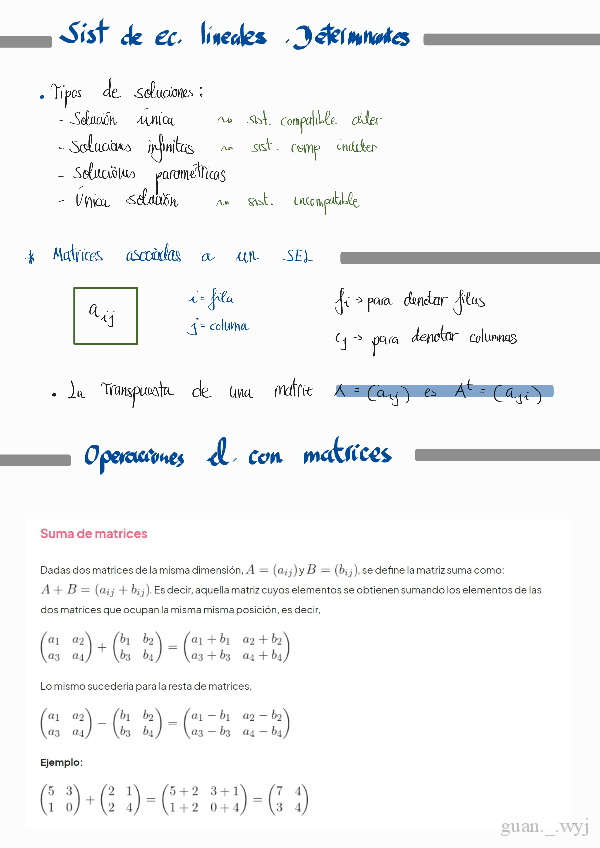 Sist de ec. lineales. Determinantes
• Tipos de soluciones:
- Solución única ~> sist. compatible deter
- Soluciones infinitas ~> sist. comp indeter
- Soluciones paramétricas
- Única solución ~> sist. incompatible
* Matrices asociadas a un SEL
a_ij
i = fila
j = columna
f_i -> para denotar filas
c_j -> para denotar columnas
• La transpuesta de una matriz A = (a_ij) es A^t = (a_ji)
Operaciones el. con matrices
Suma de matrices
Dadas dos matrices de la misma dimensión, A = (a_ij) y B = (b_ij), se define la matriz suma como:
A + B = (a_ij + b_ij). Es decir, aquella matriz cuyos elementos se obtienen sumando los elementos de las
dos matrices que ocupan la misma misma posición, es decir,
(a_1 a_2) + (b_1 b_2) = (a_1 + b_1 a_2 + b_2)
(a_3 a_4) (b_3 b_4) (a_3 + b_3 a_4 + b_4)
Lo mismo sucedería para la resta de matrices,
(a_1 a_2) − (b_1 b_2) = (a_1 − b_1 a_2 − b_2)
(a_3 a_4) (b_3 b_4) (a_3 − b_3 a_4 − b_4)
Ejemplo:
(5 3) + (2 1) = (5 + 2 3 + 1) = (7 4)
(1 0) (2 4) (1 + 2 0 + 4) (3 4)
guan._.wyj